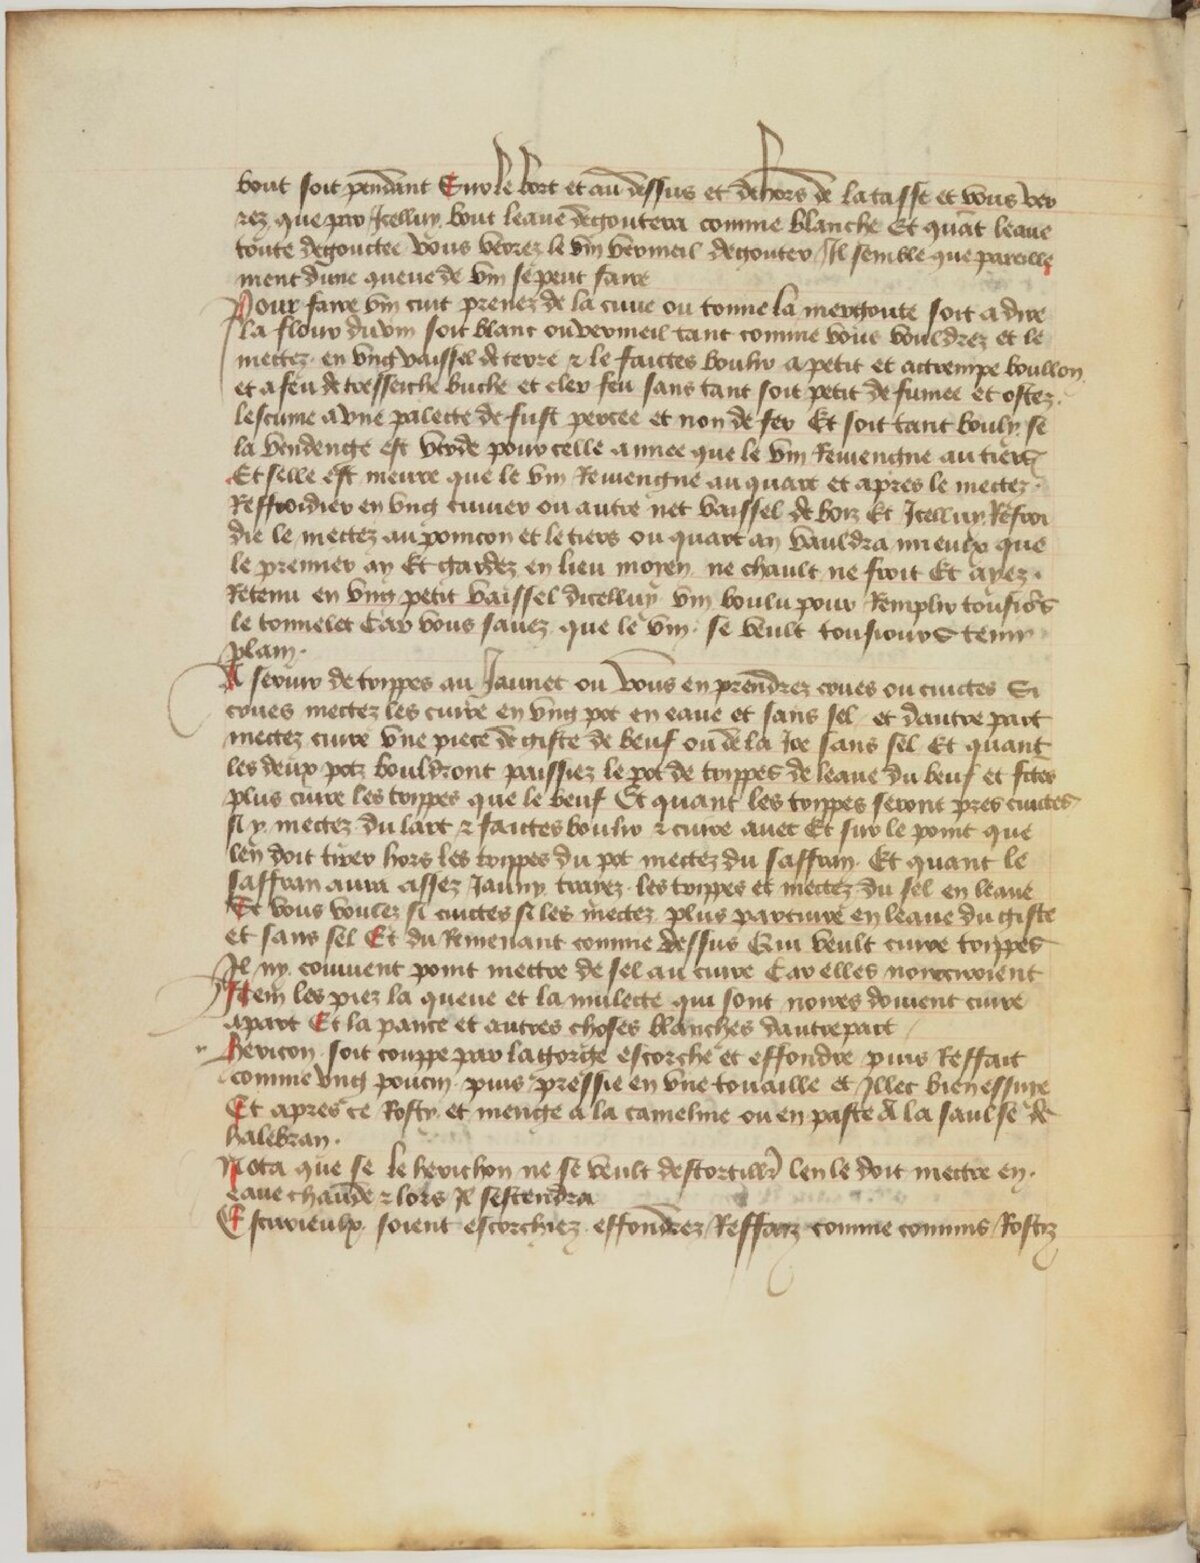 bout soit pendant sur le bort et au dessus et dehors de la tasse et vous ver
rez que par Icelluy bout leaue degoutera comme blanche Et quāt leaue
toute degouctee vous verrez le vin vermeil degouter Il semble que pareille
ment dune queue de vin se peut faire
Pour faire vin cuit prenez de la cuue ou tonne la mergoute soit a dire
la flour du vin soit blanc ou vermeil tant comme vous vouldrez et le
mectez en vng vaissel de terre & le faictes boulir a petit et actrempe boullon
et a feu de tresseiche buche et cler feu sans tant soit petit de fumee et ostez
lescume a vne palecte de fust percee et non de fer Et soit tant bouly se
la vendenge est verde pour celle annee que le vin Reuiengne au tiers
Et selle est meure que le vin Reuiengne au quart et apres le mectez
Reffroidier en vng cuuier ou autre net vaissel de boiz Et Icelluy Refroi
die le mectez au poincon et le tiers ou quart an vauldra mieulx que
le premier an Et gardez en lieu moyen ne chault ne froit Et ayez
Retenu en vng petit vaissel dicelluy vin boulu pour Remplir tousiōs
le tonnelet Car vous sauez que le vin se veult tousiours tenir
plain
A seruir de trippes au Jaunet ou vous en prendrez crues ou cuictes Si
crues mectez les cuire en vng pot en eaue et sans sel et dautre part
mectez cuire vne piece de giste de beuf ou de la Joe sans sel Et quant
les deux potz bouldront paissiez le pot de trippes de leaue du beuf et fctes
plus cuire les trippes que le beuf Et quant les trippes seront pres cuictes
si y mectez du lart & faictes boulir & cuire auec Et sur le point que
len doit tirer hors les trippes du pot mectez du saffran Et quant le
saffran aura assez Jauny traiez les trippes et mectez du sel en leaue
Et vous voulez si cuictes si les mectez plus parcuire en leaue du giste
et sans sel Et du Remenant comme dessus Qui veult cuire trippes
Il ny conuient point mectre de sel au cuire Car elles noirciroient
Item les piez la queue et la mulecte qui sont noires doiuent cuire
apart Et la pance et autres choses blanches dautrepart
Hericon soit couppe par la gorge escorche et effondre puis Reffait
comme vng poucin puis pressie en vne touaille et Illec bien essuye
Et apres ce Rosty et menge a la cameline ou en paste A la saulse de
halebran
Nota que se le herichon ne se veult destortillr̄ len le doit mectre en
eaue chaude & lors Il sestendra
Escurieulx soient escorchiez effondrez Reffaiz comme connins Rostiz